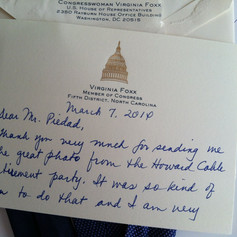 CONGRESSWOMAN VIRGINIA FOXX
U.S. HOUSE OF REPRESENTATIVES
2350 RAYBURN HOUSE OFFICE BUILDING
WASHINGTON, DC 20515
VIRGINIA FOXX
MEMBER OF CONGRESS
FIFTH DISTRICT, NORTH CAROLINA
March 7, 2014
ear Mr. Piedad,
hank you very much for sending me
he great photo from the Howard Coble
tirement party. It was so kind of
to do that and I am very